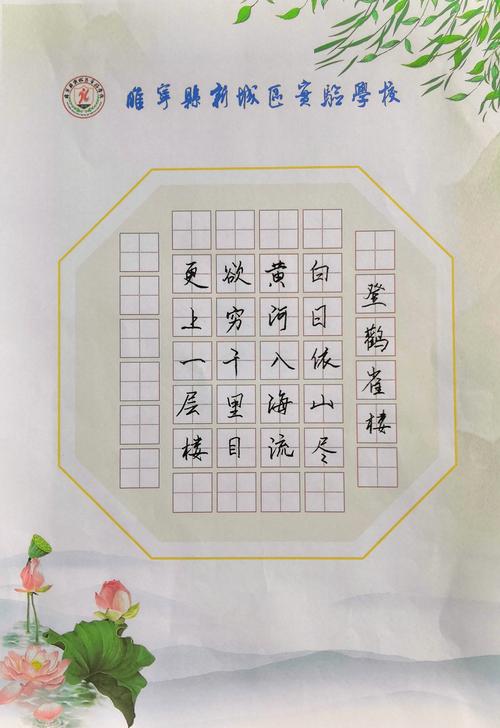 睢宁县新城区实验學校
登鹳雀楼
白日依山尽
黄河入海流
欲穷千里目
更上一层楼